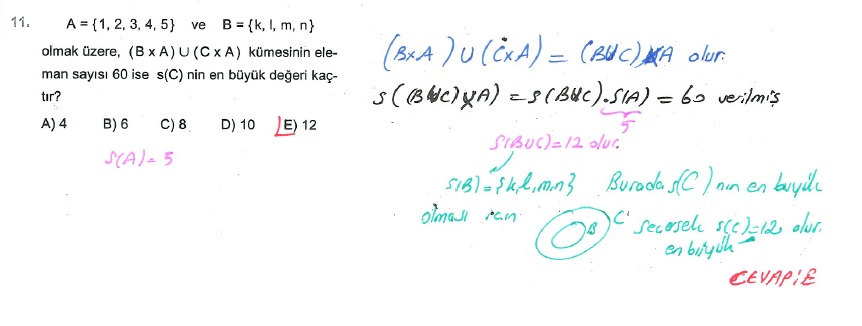 11. A = {1, 2, 3, 4, 5} ve B = {k, l, m, n}
olmak üzere, (B x A) ∪ (C x A) kümesinin ele-
man sayısı 60 ise s(C) nin en büyük değeri kaç-
tır?
A) 4 B) 6 C) 8 D) 10 E) 12
s(A) = 5
(B×A) ∪ (C×A) = (B∪C)×A olur.
s((B∪C)×A) = s(B∪C).s(A) = 60 verilmiş
5
s(B∪C)=12 olur.
s(B)={k,l,m,n} Burada s(C) nın en büyük
olması için B C seçersek s(C)=12 olur.
en büyük
CEVAP: E